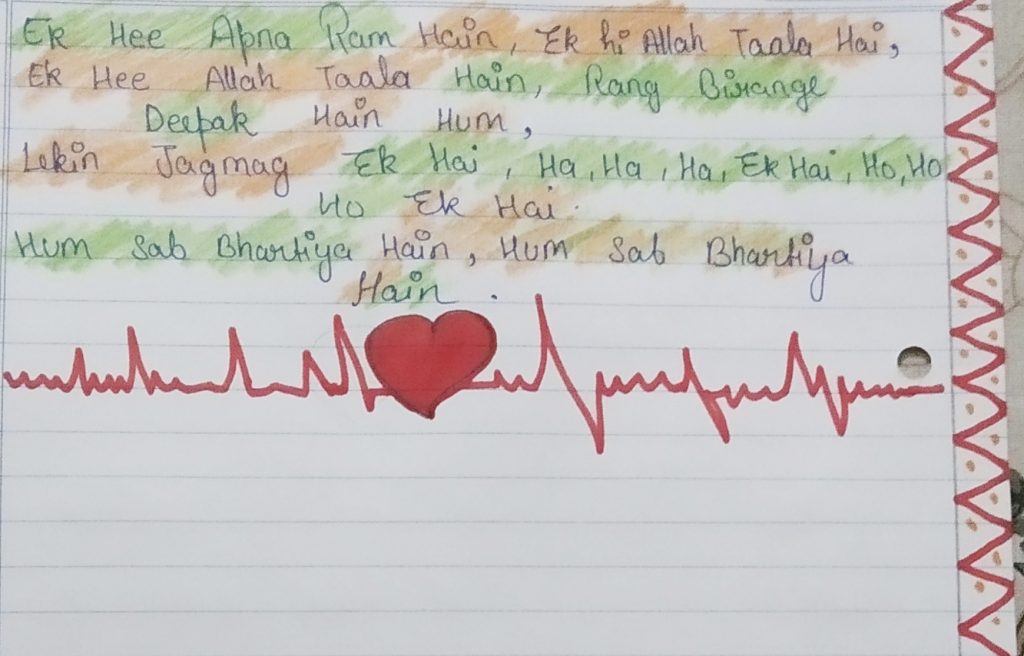 Ek Hee Apna Ram Hain, Ek hi Allah Taala Hai,
Ek Hee Allah Taala Hain, Rang Birange
Deepak Hain Hum,
Lekin Jagmag Ek Hai, Ha, Ha, Ha, Ek Hai, Ho, Ho
Ho Ek Hai.
Hum Sab Bhartiya Hain, Hum Sab Bhartiya
Hain.